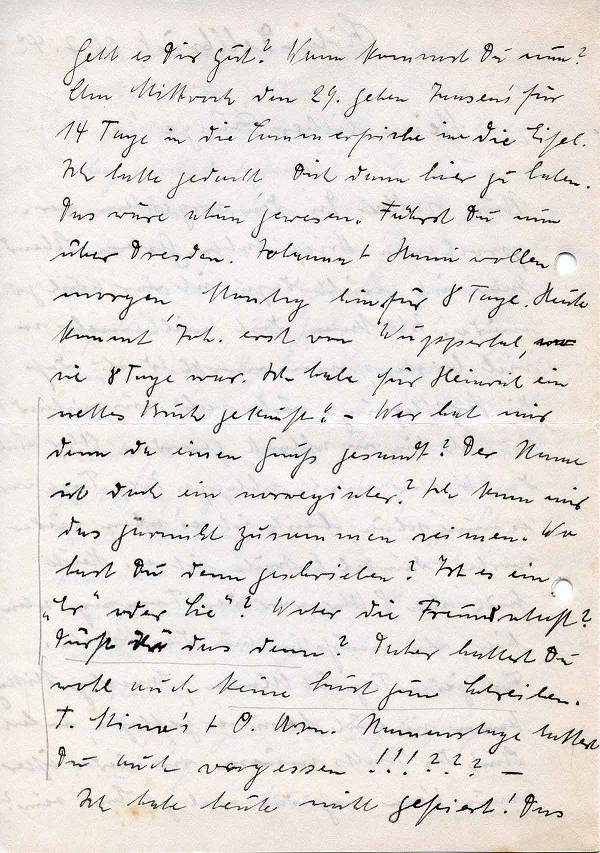 Geht es Dir gut? Wann kommst Du nun?
Am Mittwoch den 29. gehen Jansen's für
14 Tage in die Sommerfrische in die Eifel.
Ich hatte gedacht Dich dann hier zu haben.
Das wäre schön gewesen. Fährst Du nun
über Dresden. Johanna + Hanni wollen
morgen Montag hin für 8 Tage. Heute
kommt Joh. erst von Wuppertal, wo
sie 8 Tage war. Ich habe für Heinrich ein
nettes Buch gekauft. – Wer hat mir
denn da einen Gruß gesandt? Der Name
ist doch ein norwegischer? Ich kann mir
das garnicht zusammen reimen. Wo
hast Du denn geschrieben? Ist es ein
"Er" oder "Sie"? Woher die Freundschaft?
Darfst Du das denn? Daher hattest Du
wohl auch keine Lust zum Schreiben.
T. Mina's + O. Namenstage hattest
Du auch vergessen !!! ??? –
Ich habe heute mitt gefeiert! Das